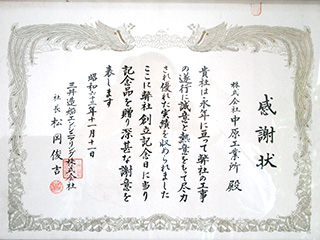 感謝状
株式会社 中原工業所 殿
貴社は永年に亘って弊社の工事
の遂行に誠意と熱意をもって尽力
され優れた実績を収められました
ここに弊社創立記念日に当り
記念品を贈り深甚な謝意を
表します
昭和六十三年十一月十一日
三井造船エンジニアリング株式会社
社長 松岡俊吉